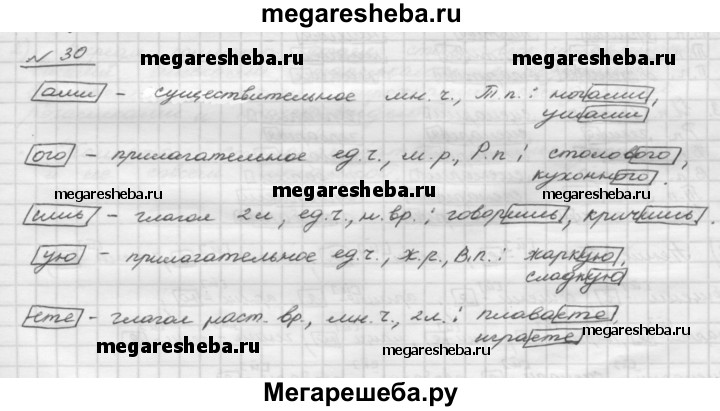 megaresheba.ru
№ 30 megaresheba.ru megaresheba.ru
ами - существительное мн. ч., Т.п.: ногами,
ушами
ого - прилагательное ед.ч., м.р., Р.п: столового,
megaresheba.ru megaresheba.ru кухонного.
ишь - глагол 2л, ед.ч., н.вр.: говоришь, кричишь.
megaresheba.ru megaresheba.ru
ую - прилагательное ед.ч., ж.р., В.п.: жаркую,
сладкую
ете - глагол наст. вр., мн.ч., 2л.: плаваете,
играете megaresheba.ru
megaresheba.ru megaresheba.ru
Мегарешеба.ру